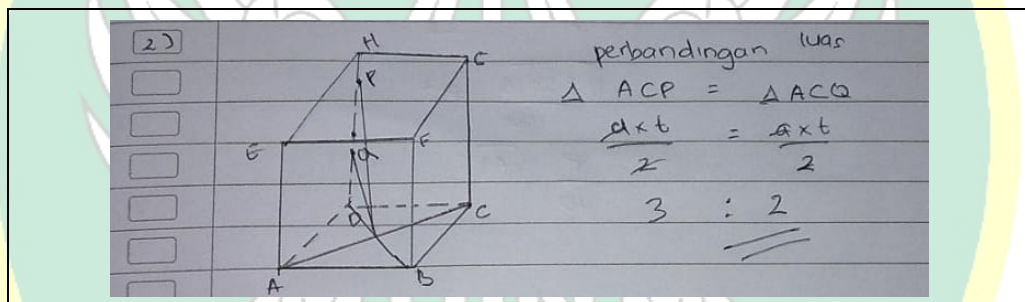 2)
H
C
P
E
F
Q
D
C
A
B
perbandingan luas
△ ACP = △ ACQ
a x t / 2 = a x t / 2
3 : 2